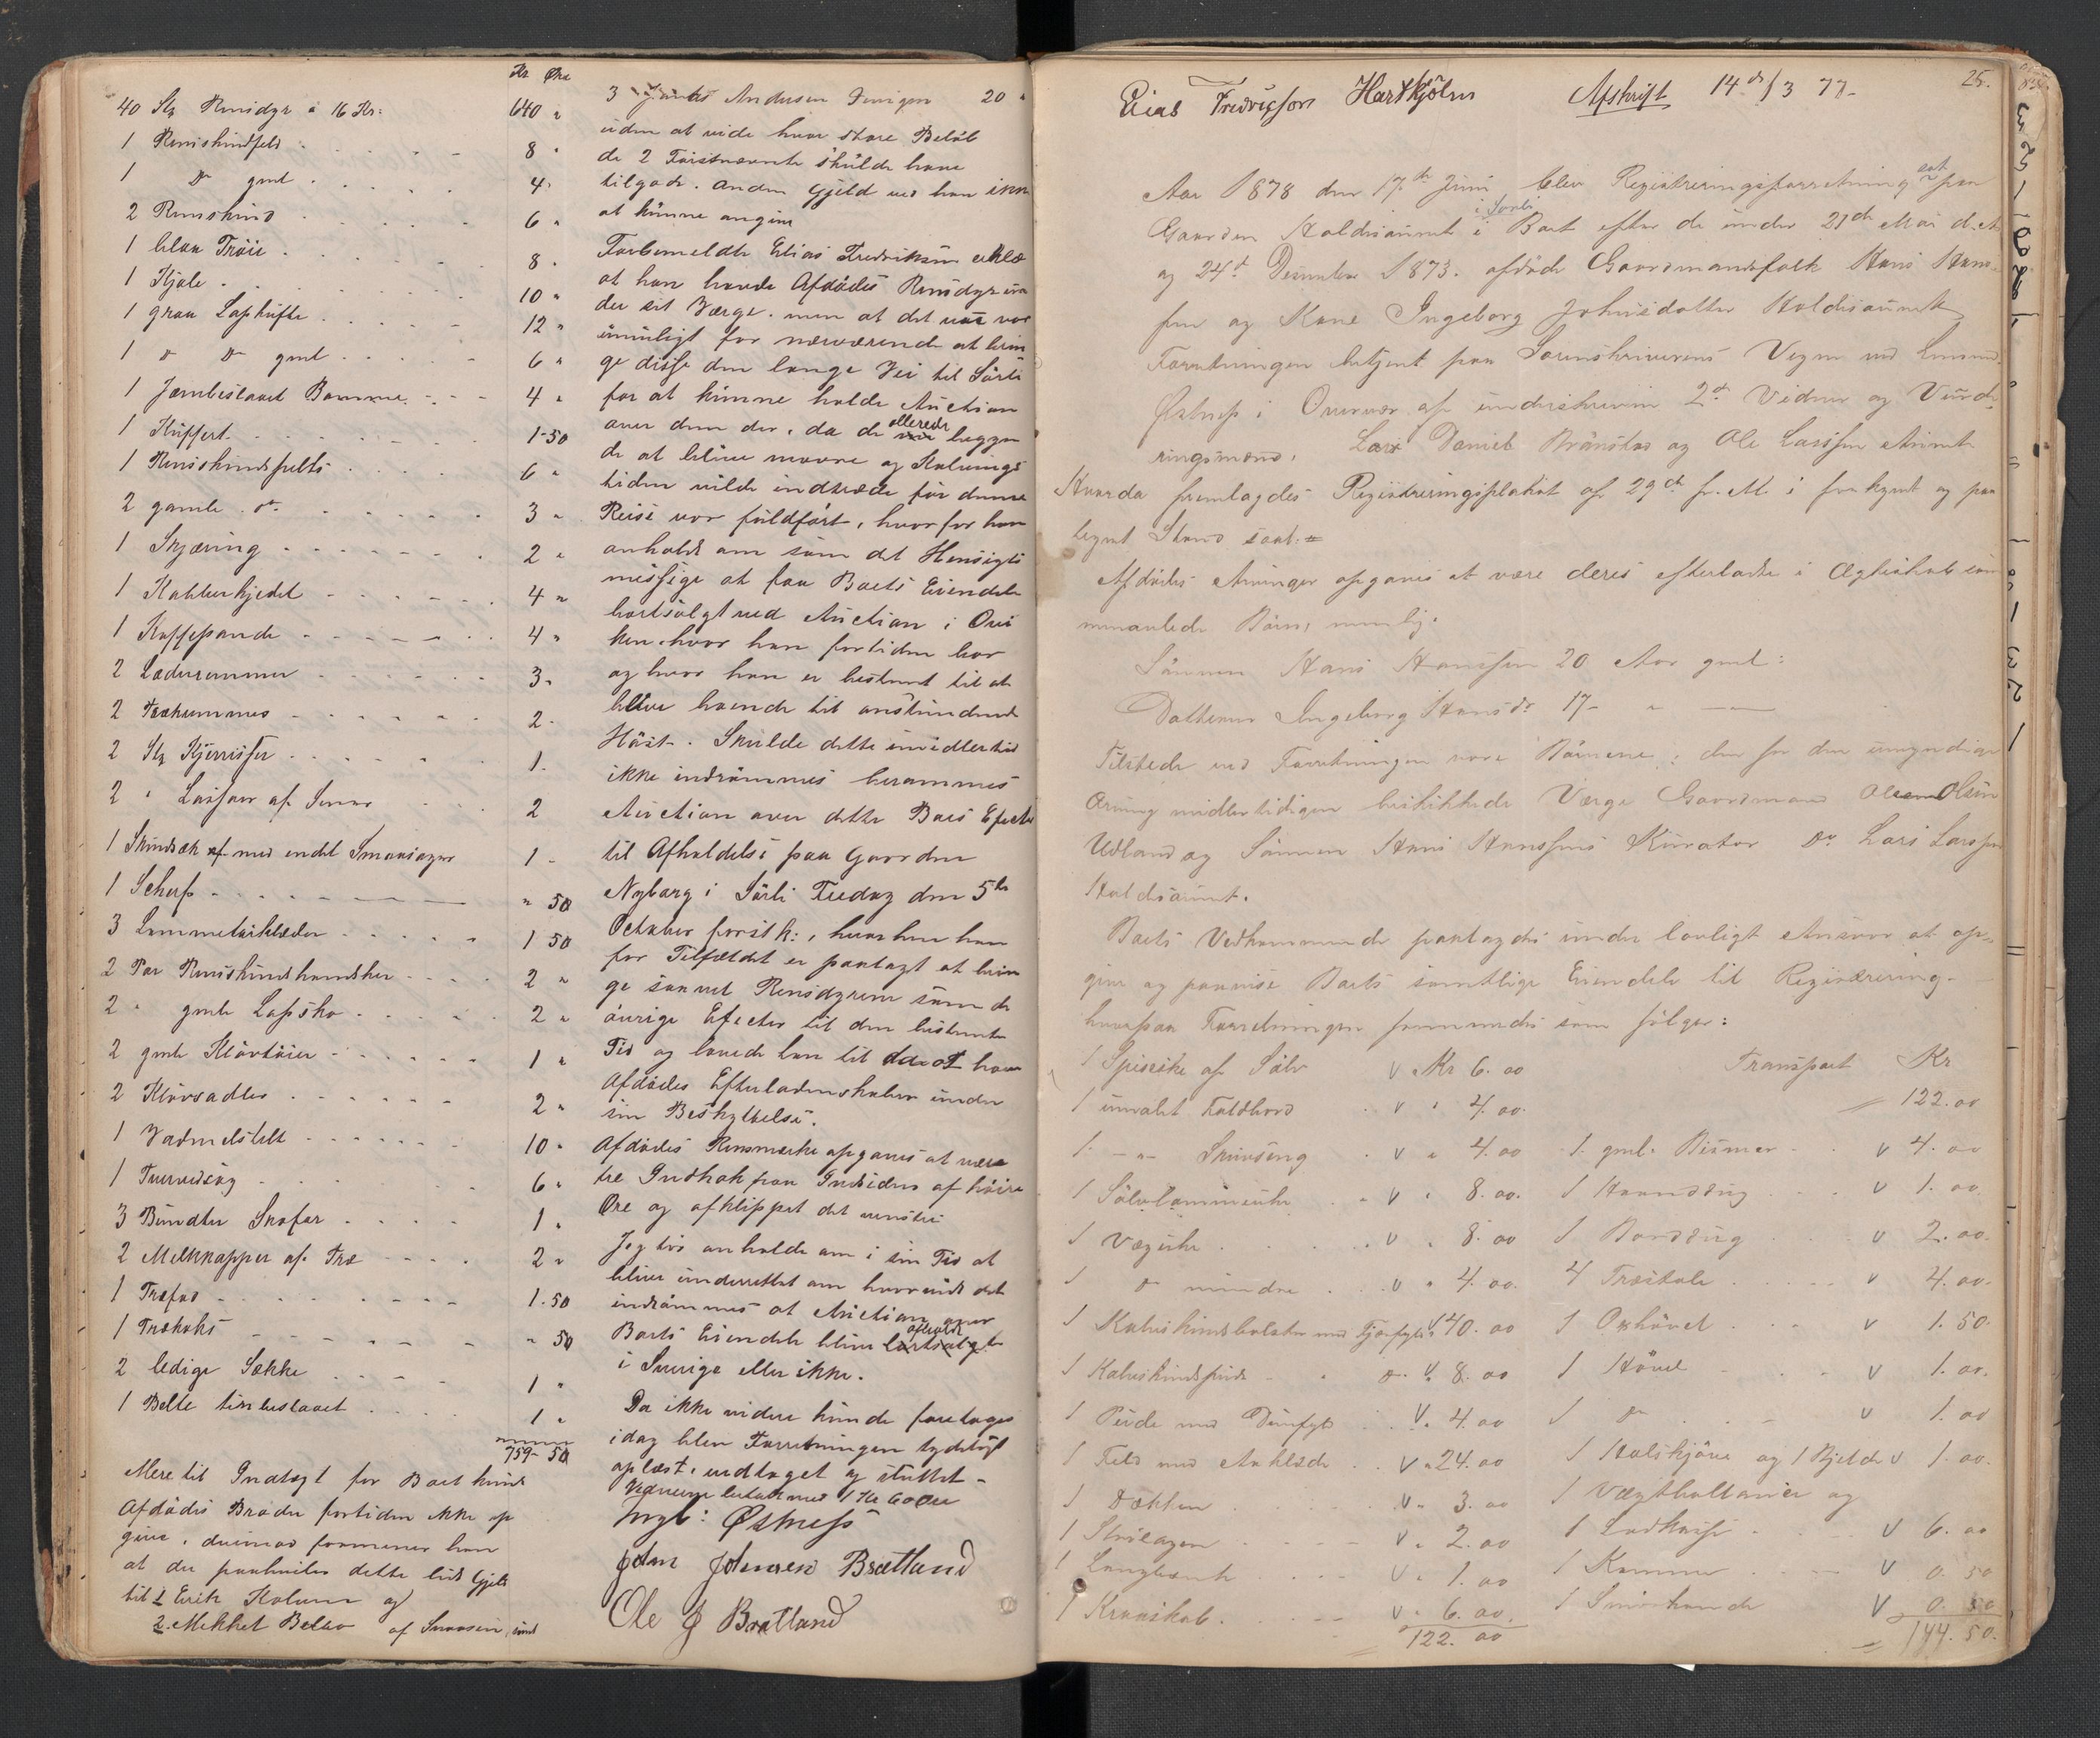 Kr Øre
40 Stk Rensdyr à 16 Kr: 640 "
1 Renskindfeld 8 "
1 Do gml 4 "
2 Renskind 6 "
1 blaa Trøie 8 "
1 Kjole 10 "
1 graa Lapkufte 12 "
1 d Do gml 6 "
1 Jernbeslaaet Bomme 4 "
1 Kuffert 1-50
1 Renskindspelts 6 "
2 gamle do 3 "
1 Skjæring 2 "
1 Kobberkjedel 4 "
1 Kaffepande 4 "
2 Læderremmer 3 "
2 Trærummer 2 -
2 Stk Kjerrisser 1 -
2 " Lassoer af Sener 2
1 Skindsæk med endel Smaasager 1 -
1 Scherf " 50
3 Lommetørklæder 1 50
2 Par Renskindshandsker 2 "
2 " gmle Lapsko 2 "
2 gmle Kløvtøier 1 "
2 Kløvsadler 2 "
1 Vadmelstelt 10 "
1 Tvervedsag 6 "
3 Bundter Skafar 1 "
2 Melkkopper af Træ 2 "
1 Træfad 1-50
1 Trækoks " 50
2 ledige Sække 1 "
1 Belte tinbeslaaet 1 "
759-50
Mere til Indtægt for Boet kunde
Afdødes Broder fortiden ikke op
give, derimod formener han
at der paahviler dette lidt Gjeld
til 1 Erik Holum og
2. Mekkel Belbo af Snaasen, samt
3 Andersen 20 "
uden at vide hvor store Beløb
de 2 Førstnævnte skulde have
tilgode. Anden Gjeld ved han ikke
at kunne angive
Forbemeldte Elias Fredriksen erklæ
at han havde Afdødes Rensdyr un
der sit Værge, men at det var
umuligt for nærværende at brin
ge disse den lange Vei til Sørli
for at kunne holde Auction
over dem der, da de allerede begyn
de at blive magre og Kalvnings
tiden vilde indtræde før denne
Reise var fuldført, hvorfor han
anholdt om som det Hensigts
mæssige at faa Boets Eiendele
bortsolgt ved Auction i Ovi
ken, hvor han fortiden bor
og hvor han er bestemt til at
blive boende til anstundende
Høst. Skulde dette imidlertid
ikke indrømmes berammes
Auction over dette Boes Efecter
til Afholdelse paa Gaarden
Nyborg i Sørli Tredag den 5te
October førstk:, hvorhen han
for Tilfældet er paataget at brin
ge saavel Rensdyrene som de
øvrige Efecter til den bestemte
Tid og lovede han til da at have
Afdødes Efterladenskaber under
sin Beskyttelse.
Afdødes Rensmærke opgaves at være
tre Indhak paa Indsiden af høire
Øre og afklippet det venstre
Jeg tør anholde om i sin Tid at
blive underrettet om hvorvidt det
indrømmes at Auction over
Boets Eiendele bliver afholdt
i Sverige eller ikke.
Da ikke videre kunde foretages
idag blev Forretningen tydeligt
oplæst, vedtaget og sluttet -
Vidnerne betalt med 1 Kr 60 Øre
Ingb: Østness
John Johnsen Brætland
Ole J Bratland
Elias Fredrikson Hartkjølen Afskrift 14de/3 77-
25.
Aar 1878 den 17de Juni blev Registreringsforretning sat paa
Gaarden Holdesaunet i Sørli i Boet efter de under 21de Mai d.A
og 24de December 1873. afdøde Gaardmandsfolk Hans Hans-
sen og Kone Ingeborg Johnsdatter Holdesaunet
Forretningen betjent paa Sorenskriverens Vegne ved Lensmd.
Østness i Overvær af underskrevne 2de Vidner og Vurde
ringsmænd, Lars Daniel Brønstad og Ole Larssen Aunet
Hvorda fremlagdes Registreringsplakat af 29de f. M. i forkyndt og paa
tegnet Stand saal:=
Afdødes Arvinger opgaves at være deres efterladte i Ægteskab sam
menavlede Børn, nemlig.
Sønnen Hans Hanssen 20 Aar gml:
Datteren Ingeborg Hansdr 17- " —
Tilstede ved Forretningen vare Børnene, den for den umyndige
Arving midlertidigen beskikkede Værge Gaardmand Ole Olsen
Udland og Sønnen Hans Hanssens Kurator Do Lars Larssen
Holdesaunet.
Boets Vedkommende paalagdes under lovligt Ansvar at op-
give og paavise Boets samtlige Eiendele til Registrering-
hvorpaa Forretningen fremmedes som følger:
1 Spiseske af Sølv v Kr 6. 00
1 umalet Foldbord v " 4. 00
1. -"- Skuvseng v " 4. 00
1 Sølvlommeuhr v " 8. 00.
1 Væguhr v " 8. 00
1 do mindre v " 4. 00.
1 Kalveskindsbolster med Fjærfyld v 40. 00
1 Kalveskindspude do v. 8. 00
1 Pude med Dunfyld v. 4. 00
1 Feld med Aaklæde v " 24. 00
1 Dækken v " 3. 00
1 Strilagen v " 2. 00
1 v " 1. 00
1 Kraaskab v " 6. 00.
122. 00
Transport Kr
122. 00
1 gml. Bismer v 4. 00
1 Haanddug v 1. 00
1 Borddug v 2. 00.
4 Træstole v 4. 00.
1 Oxhøvel v 1. 50.
1 Høvel v 1. 00.
1 do v 1. 00
1 Halskjøre og 1 Bjelde v 1. 00.
1 og
1 v 6. 00
1 Kamme v 0. 50
1 v 0. 50
144. 50.